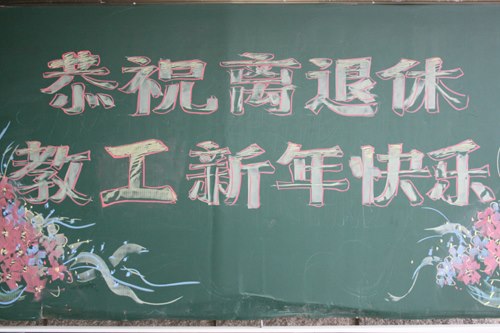 恭祝离退休
教工新年快乐